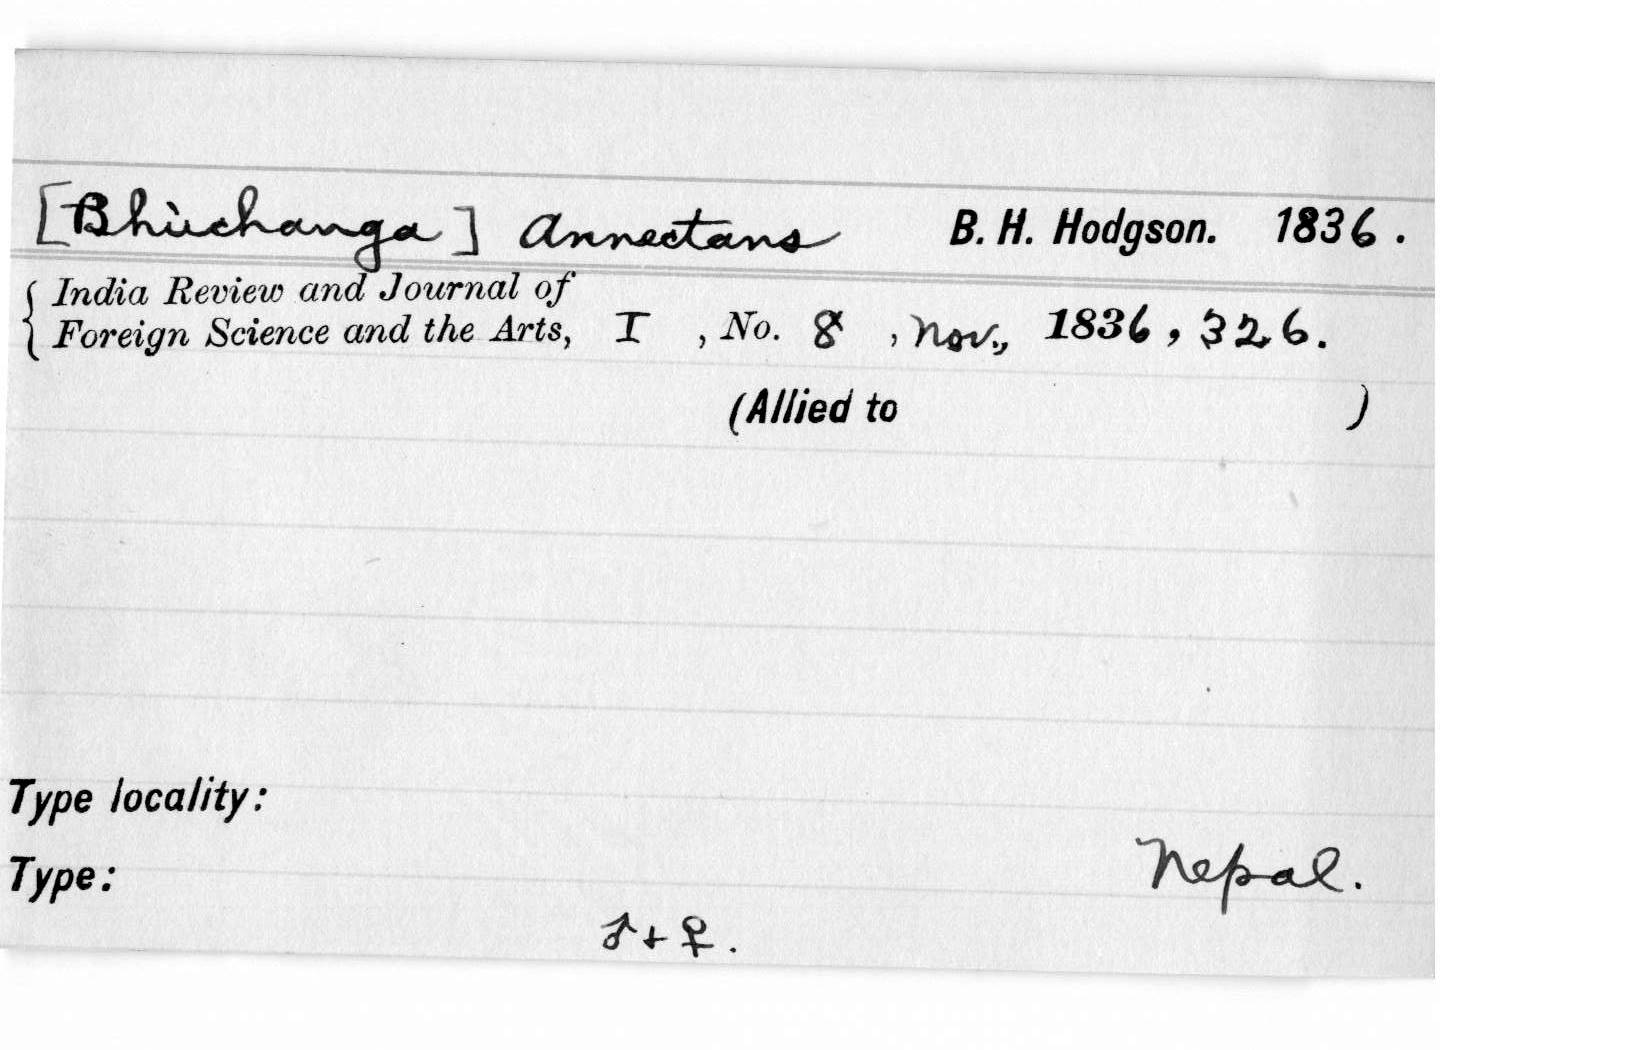 [Bhuchanga] annectans B. H. Hodgson. 1836.
India Review and Journal of
Foreign Science and the Arts, I , No. 8 , Nov., 1836, 326.
(Allied to )
Type locality:
Nepal.
Type:
♂ + ♀.